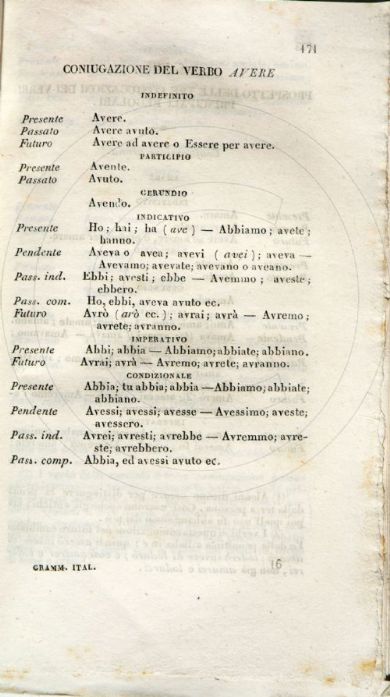 171
CONIUGAZIONE DEL VERBO AVERE
INDEFINITO
Presente Avere.
Passato Avere avuto.
Futuro Avere ad avere o Essere per avere.
PARTICIPIO
Presente Avente.
Passato Avuto.
GERUNDIO
Avendo.
INDICATIVO
Presente Ho; hai; ha (ave) — Abbiamo; avete;
hanno.
Pendente Aveva o avea; avevi (avei); aveva —
Avevamo; avevate; avevano o aveano.
Pass. ind. Ebbi; avesti; ebbe — Avemmo; aveste;
ebbero.
Pass. com. Ho, ebbi, aveva avuto ec.
Futuro Avrò (arò ec.); avrai; avrà — Avremo;
avrete; avranno.
IMPERATIVO
Presente Abbi; abbia — Abbiamo; abbiate; abbiano.
Futuro Avrai; avrà — Avremo; avrete; avranno.
CONDIZIONALE
Presente Abbia; tu abbia; abbia — Abbiamo; abbiate;
abbiano.
Pendente Avessi; avessi; avesse — Avessimo; aveste;
avessero.
Pass. ind. Avrei; avresti; avrebbe — Avremmo; avre-
ste; avrebbero.
Pass. comp. Abbia, ed avessi avuto ec.
GRAMM. ITAL. 16